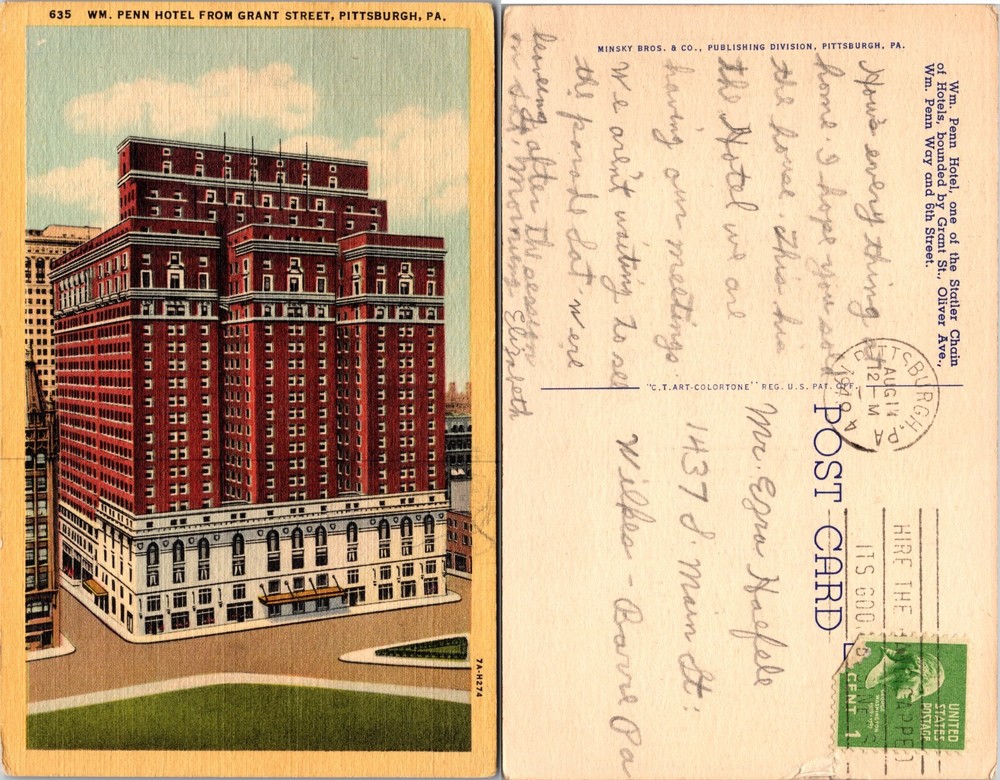 635 WM. PENN HOTEL FROM GRANT STREET, PITTSBURGH, PA.
7A-H274
Wm. Penn Hotel, one of the Statler Chain
of Hotels, bounded by Grant St., Oliver Ave.,
Wm. Penn Way and 6th Street.
MINSKY BROS. & CO., PUBLISHING DIVISION, PITTSBURGH, PA.
How's every thing at
home I hope you sold
the house. This is
the Hotel we are
having our meetings.
We aren't waiting to see
the parade Sat. were
leaving after the session
on Sat. Morning Elizabeth
"C.T. ART-COLORTONE" REG. U.S. PAT. OFF.
POST CARD
PITTSBURGH, PA
AUG 14
12 M
1949
HIRE THE HANDICAPPED
ITS GOOD
UNITED
STATES
POSTAGE
1 CENT
Mr. Ezra Haefele
1437 S. Main St.
Wilkes-Barre Pa